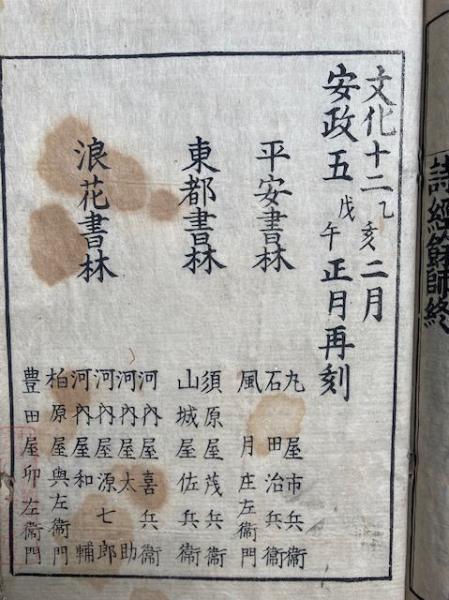 詩經餘師終
文化十二乙亥二月
安政五戊午正月再刻
平安書林
丸屋市兵衛
石田治兵衛
風月庄左衛門
東都書林
須原屋茂兵衛
山城屋佐兵衛
浪花書林
河内屋喜兵衛
河内屋太助
河内屋源七郎
河内屋和輔
柏原屋與左衛門
豊田屋卯左衛門